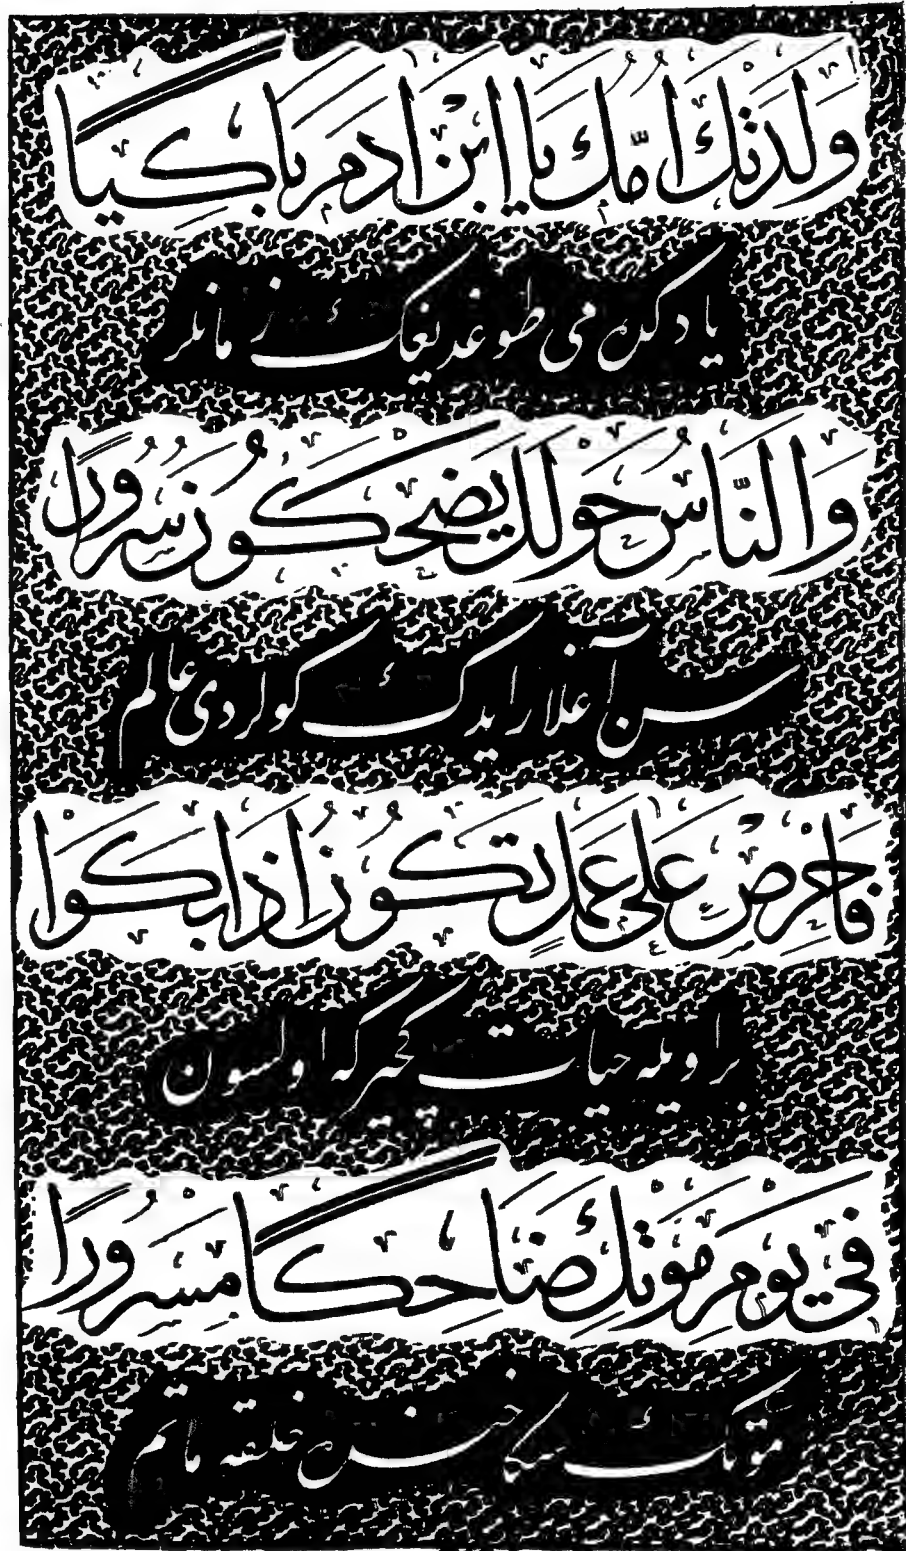 وَلَدَتْكَ اُمُّكَ يَا ابْنَ اٰدَمَ بَاكِيًا
ياد كن مى طوغديغك زمانلر
وَالنَّاسُ حَوْلَكَ يَضْحَكُونَ سُرُورًا
سن آغلار ايدك كولردى عالم
فَاحْرِصْ عَلٰى عَمَلٍ تَكُونُ اِذَا بَكَوْا
بر اويله حيات كچيركه اولسون
فِي يَوْمِ مَوْتِكَ ضَاحِكًا مَسْرُورًا
موتك سكا خنده خلقه ماتم